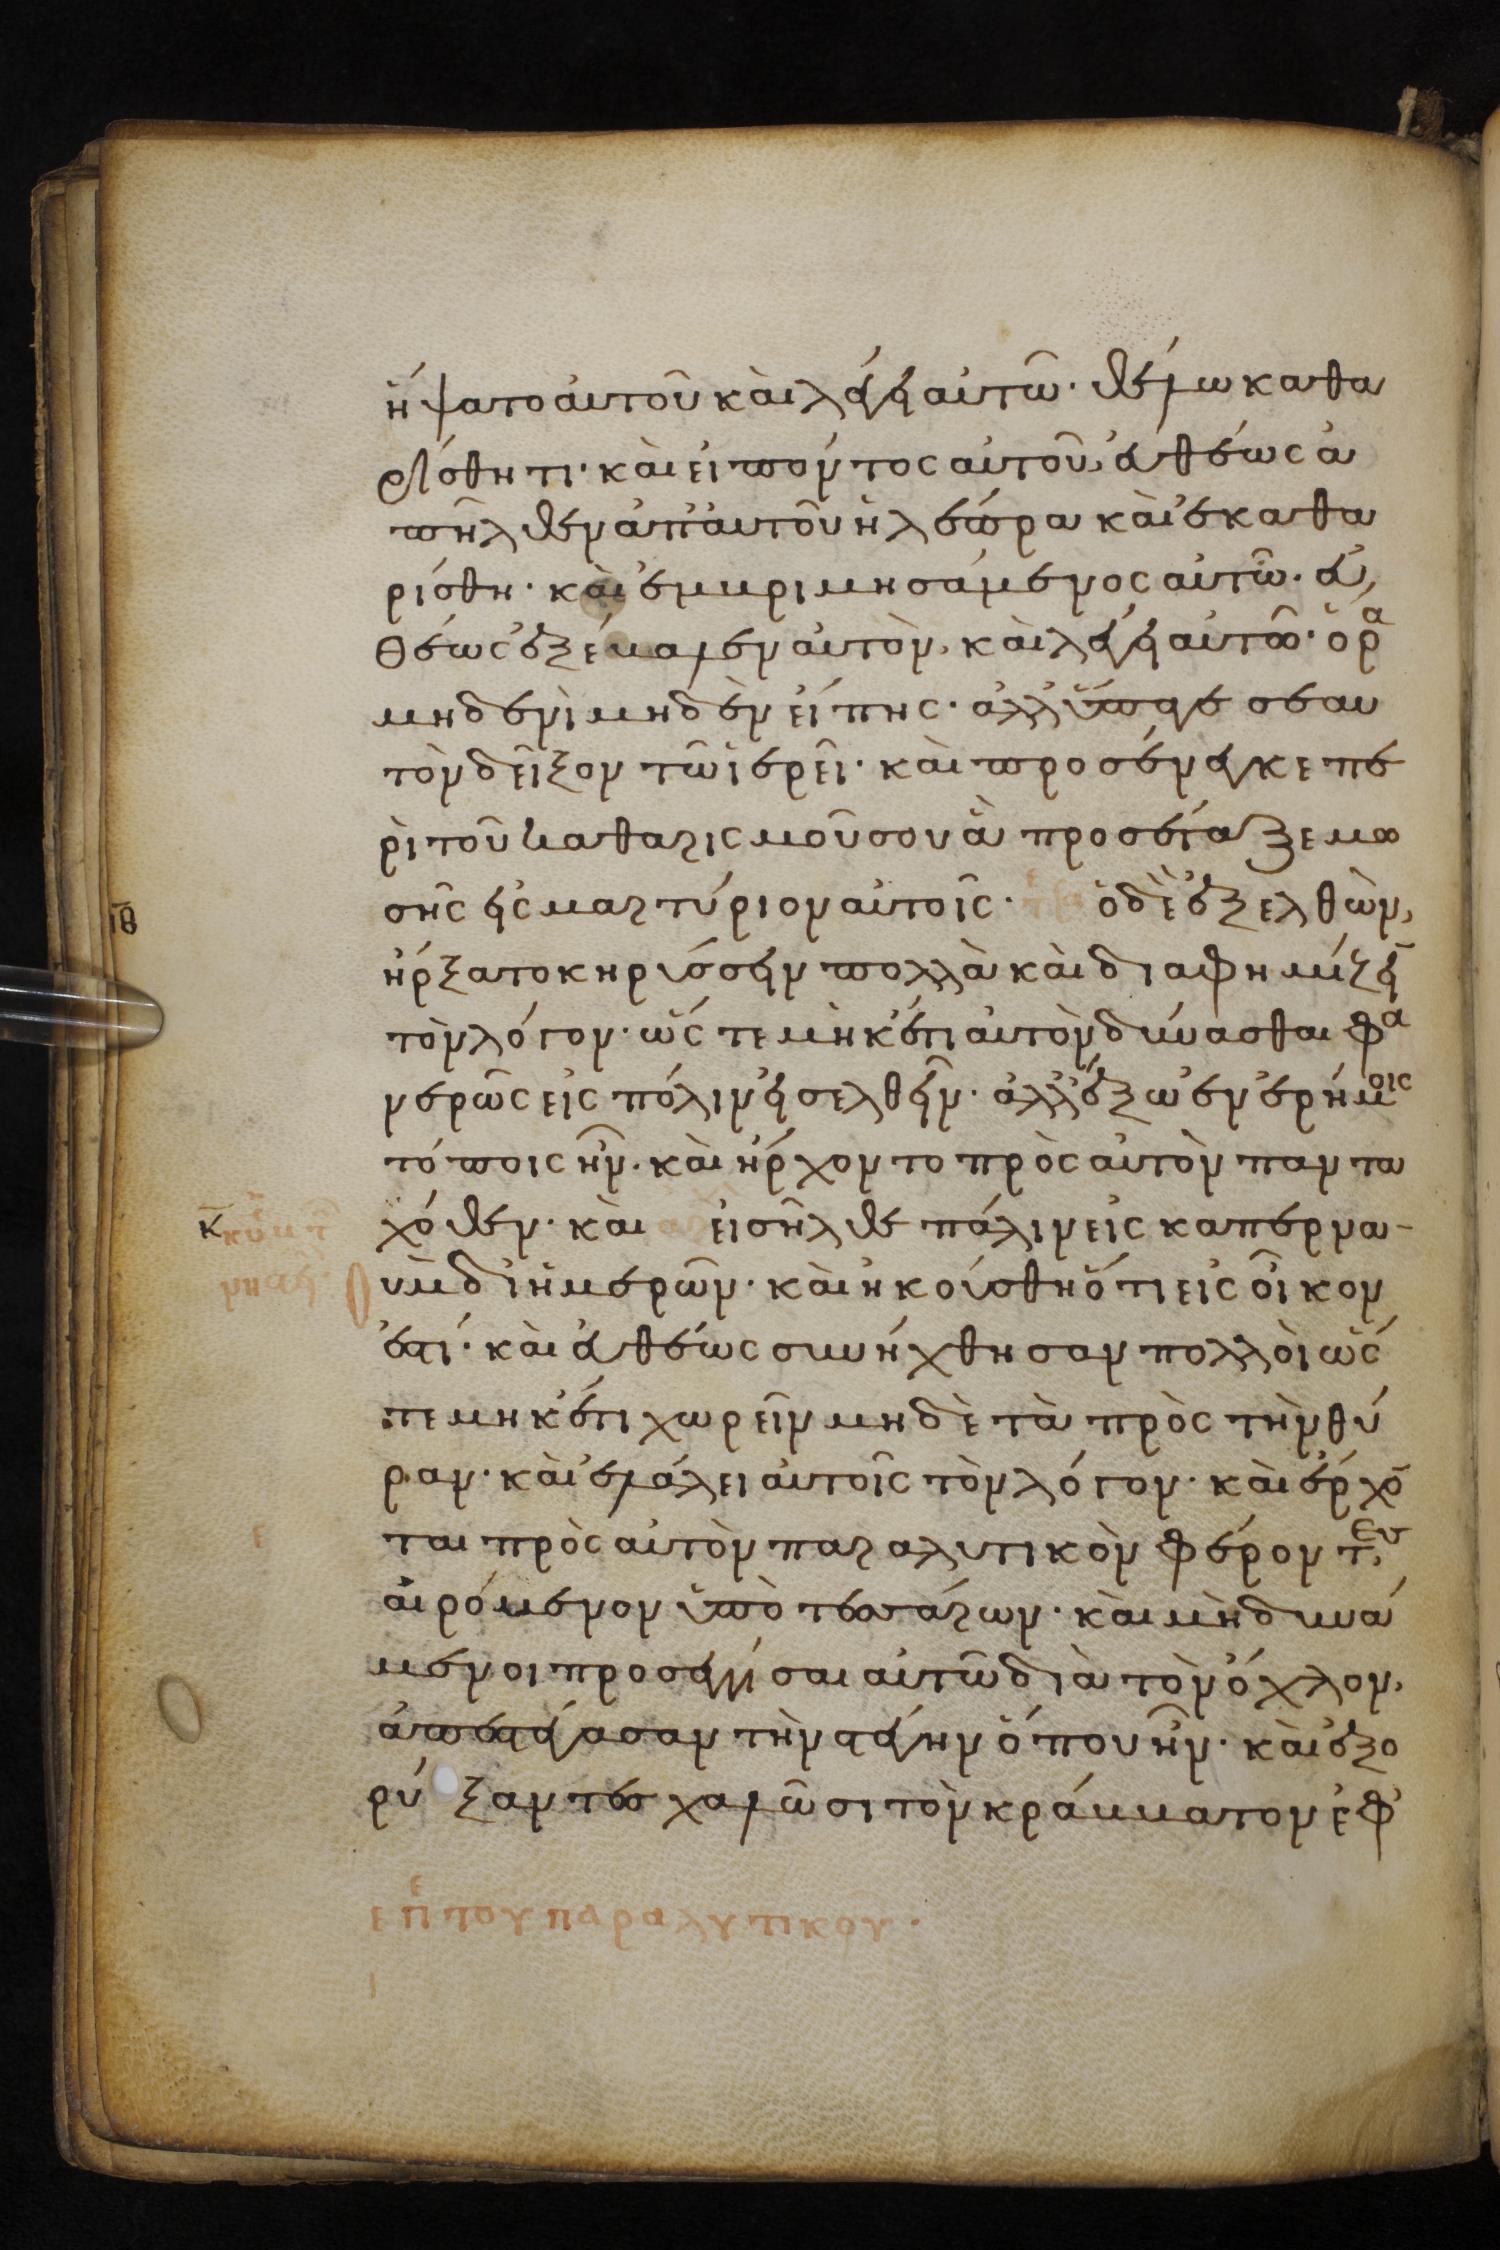 ἥψατο αὐτοῦ καὶ λέγει αὐτῶ· θέλω καθα
ρίσθητι· καὶ εἰπόντος αὐτοῦ, εὐθέως ἀ
πῆλθεν ἀπ' αὐτοῦ ἡ λέπρα καὶ ἐκαθα
ρίσθη· καὶ ἐμβριμησάμενος αὐτῶ· εὐ
θέως ἐξέβαλεν αὐτὸν, καὶ λέγει αὐτῶ· ὅρα
μηδενὶ μηδὲν εἴπης· ἀλλ' ὕπαγε σεαυ
τὸν δεῖξον τῶ ἱερεῖ· καὶ προσένεγκε πε
ρὶ τοῦ καθαρισμοῦ σου ἃ προσέταξε μω
σῆς εἰς μαρτύριον αὐτοῖς· ὁ δὲ ἐξελθὼν,
ιθ
ἤρξατο κηρύσσειν πολλὰ καὶ διαφημίζει̅
τὸν λόγον· ὥς τε μὴκέτι αὐτὸν δύνασθαι φα
νερῶς εἰς πόλιν εἰσελθεῖν· ἀλλ' ἔξω ἐν ἐρήμοις
τόποις ἦν· καὶ ἤρχοντο πρὸς αὐτὸν παντα
κ
χόθεν· καὶ εἰσῆλθε πάλιν εἰς καπερνα
οὺμ δι' ἡμερῶν· καὶ ἠκούσθη ὅτι εἰς οἶκον
ἐστί· καὶ εὐθέως συνήχθησαν πολλοὶ ὥς
τε μηκέτι χωρεῖν μηδὲ τὰ πρὸς τὴν θύ
ραν· καὶ ἐλάλει αὐτοῖς τὸν λόγον· καὶ ἔρχο̅
ε
ται πρὸς αὐτὸν παραλυτικὸν φέροντες,
αἰρόμενον ὑπὸ τεσσάρων· καὶ μὴ δυνά
μενοι προσεγγίσαι αὐτῶ διὰ τὸν ὄχλον,
ἀπεστέγασαν τὴν στέγην ὅπου ἦν· καὶ ἐξο
ρύξαντες χαλῶσι τὸν κράββατον ἐφ'
ε
επι του παραλυτικου·